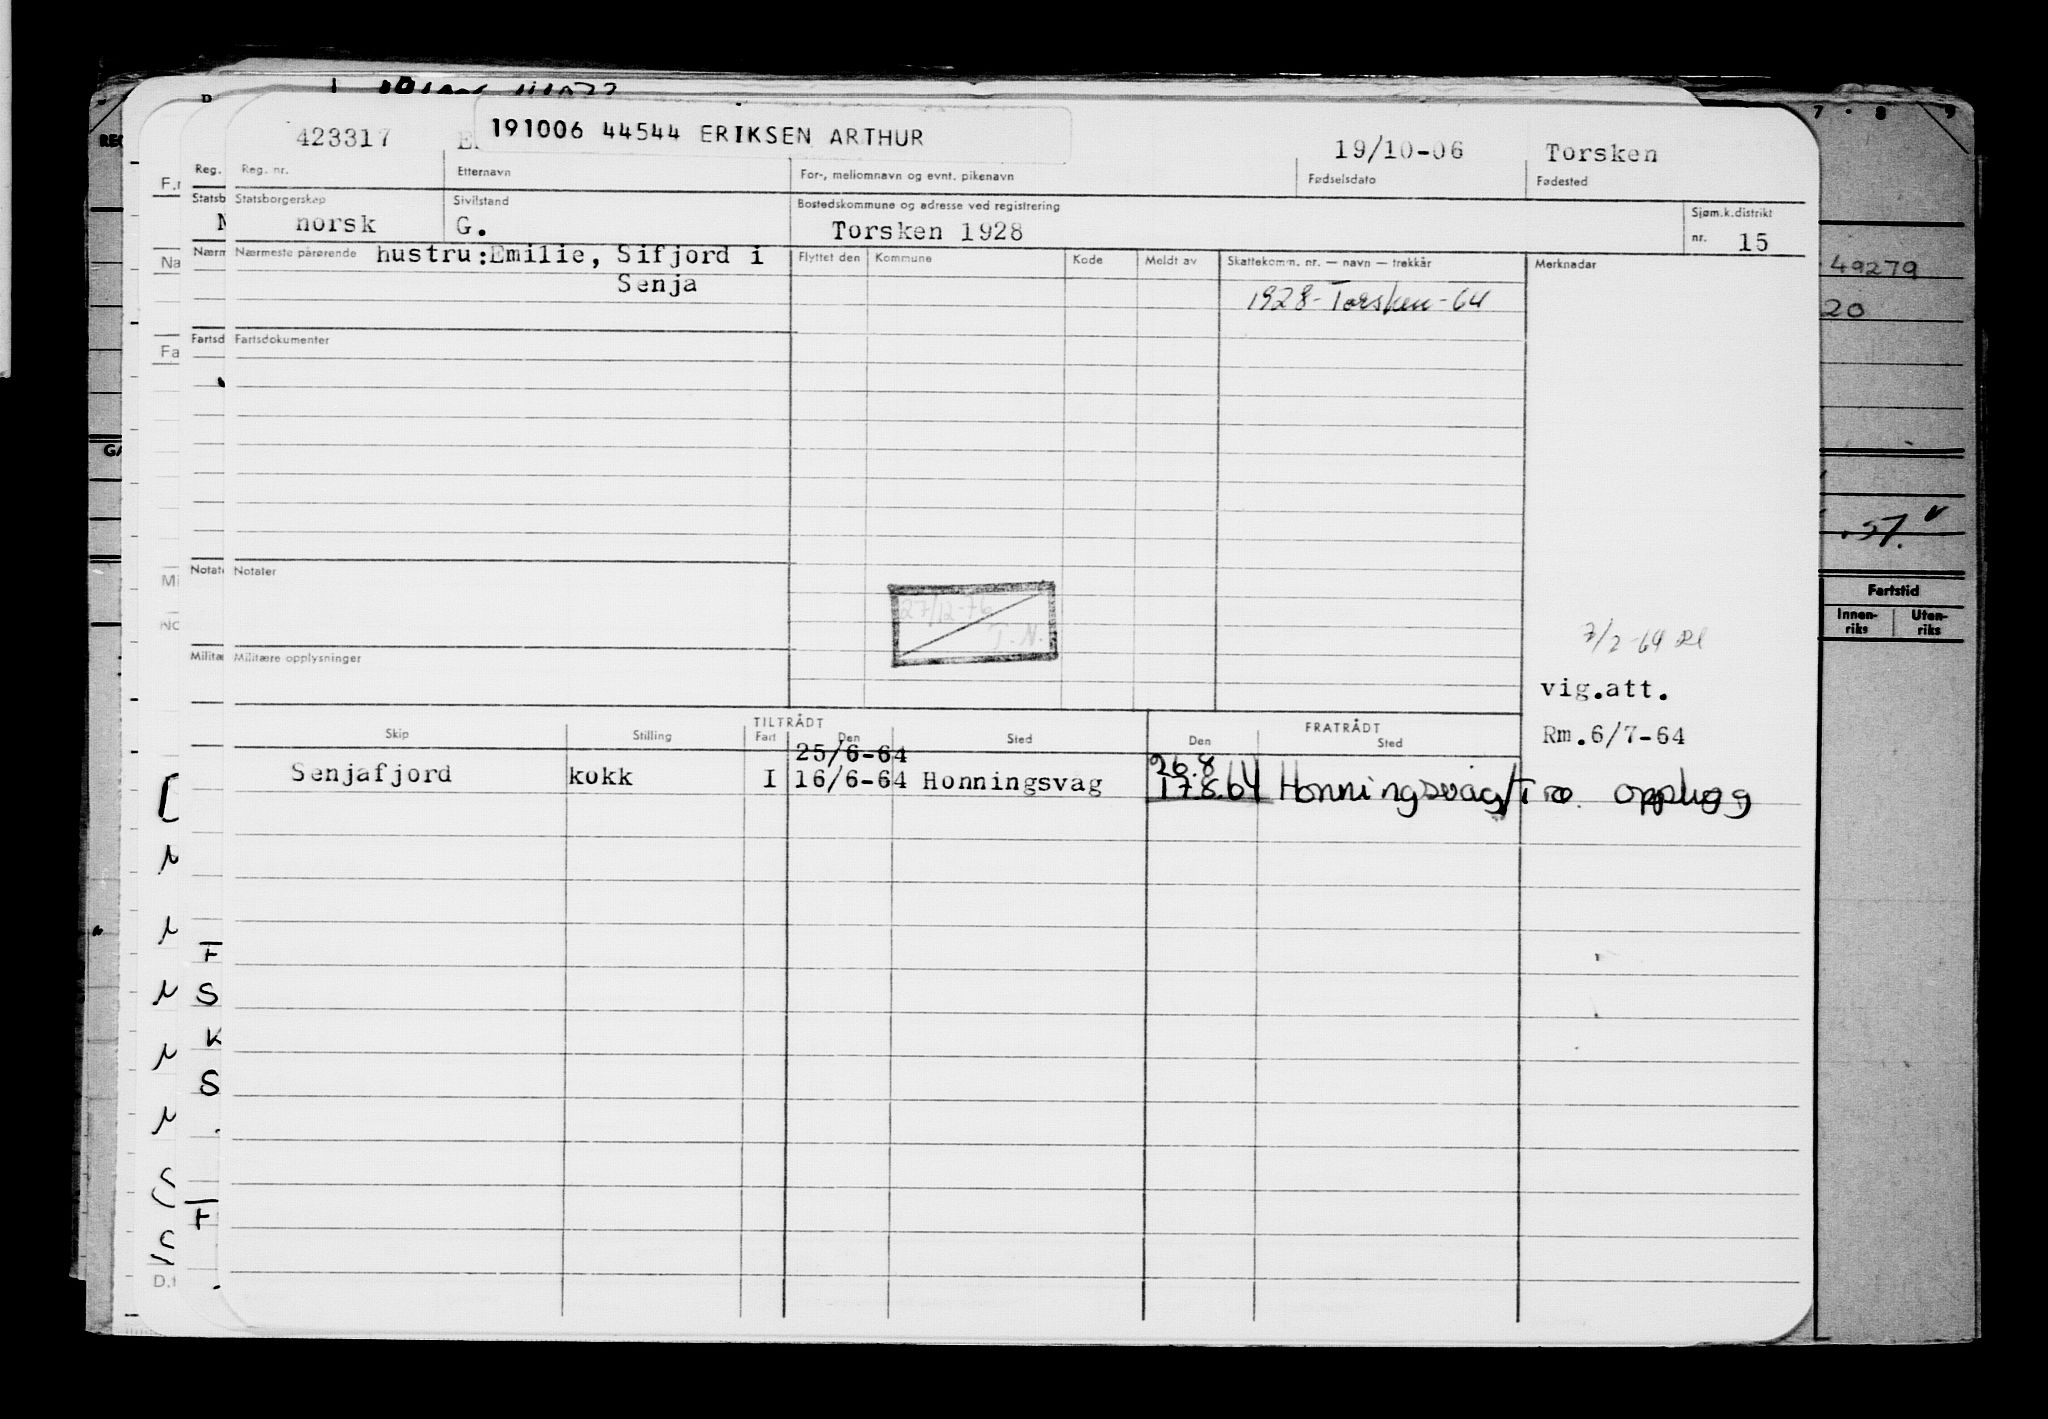 423317
191006 44544 ERIKSEN ARTHUR
19/10-06
Torsken
Reg. nr.
Etternavn
For-, mellomnavn og evnt. pikenavn
Fødselsdato
Fødested
Statsborgerskap
Sivilstand
Bostedskommune og adresse ved registrering
Sjøm.k.distrikt
norsk
G.
Torsken 1928
nr. 15
Nærmeste pårørende
hustru:Emilie, Sifjord i
Senja
Flyttet den
Kommune
Kode
Meldt av
Skattekomm. nr. — navn — trekkår
Merknader
1928-Torsken-64
49279
20
Fartsdokumenter
Notater
27/12-76
T.N.
Militære opplysninger
7/2-64
vig.att.
Rm.6/7-64
Fartstid
Innen-
riks
Uten-
riks
TILTRÅDT
FRATRÅDT
Skip
Stilling
Fart
Den
Sted
Den
Sted
25/6-64
26.8
Senjafjord
kokk
I
16/6-64
Honningsvag
17.8.64
Honningsvåg/Tro. opplegg